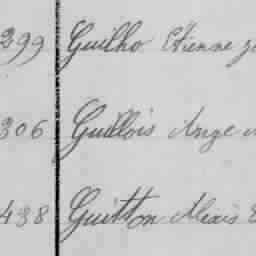 299 Guilho Etienne
306 Guillois Ange
438 Guitton Alexis